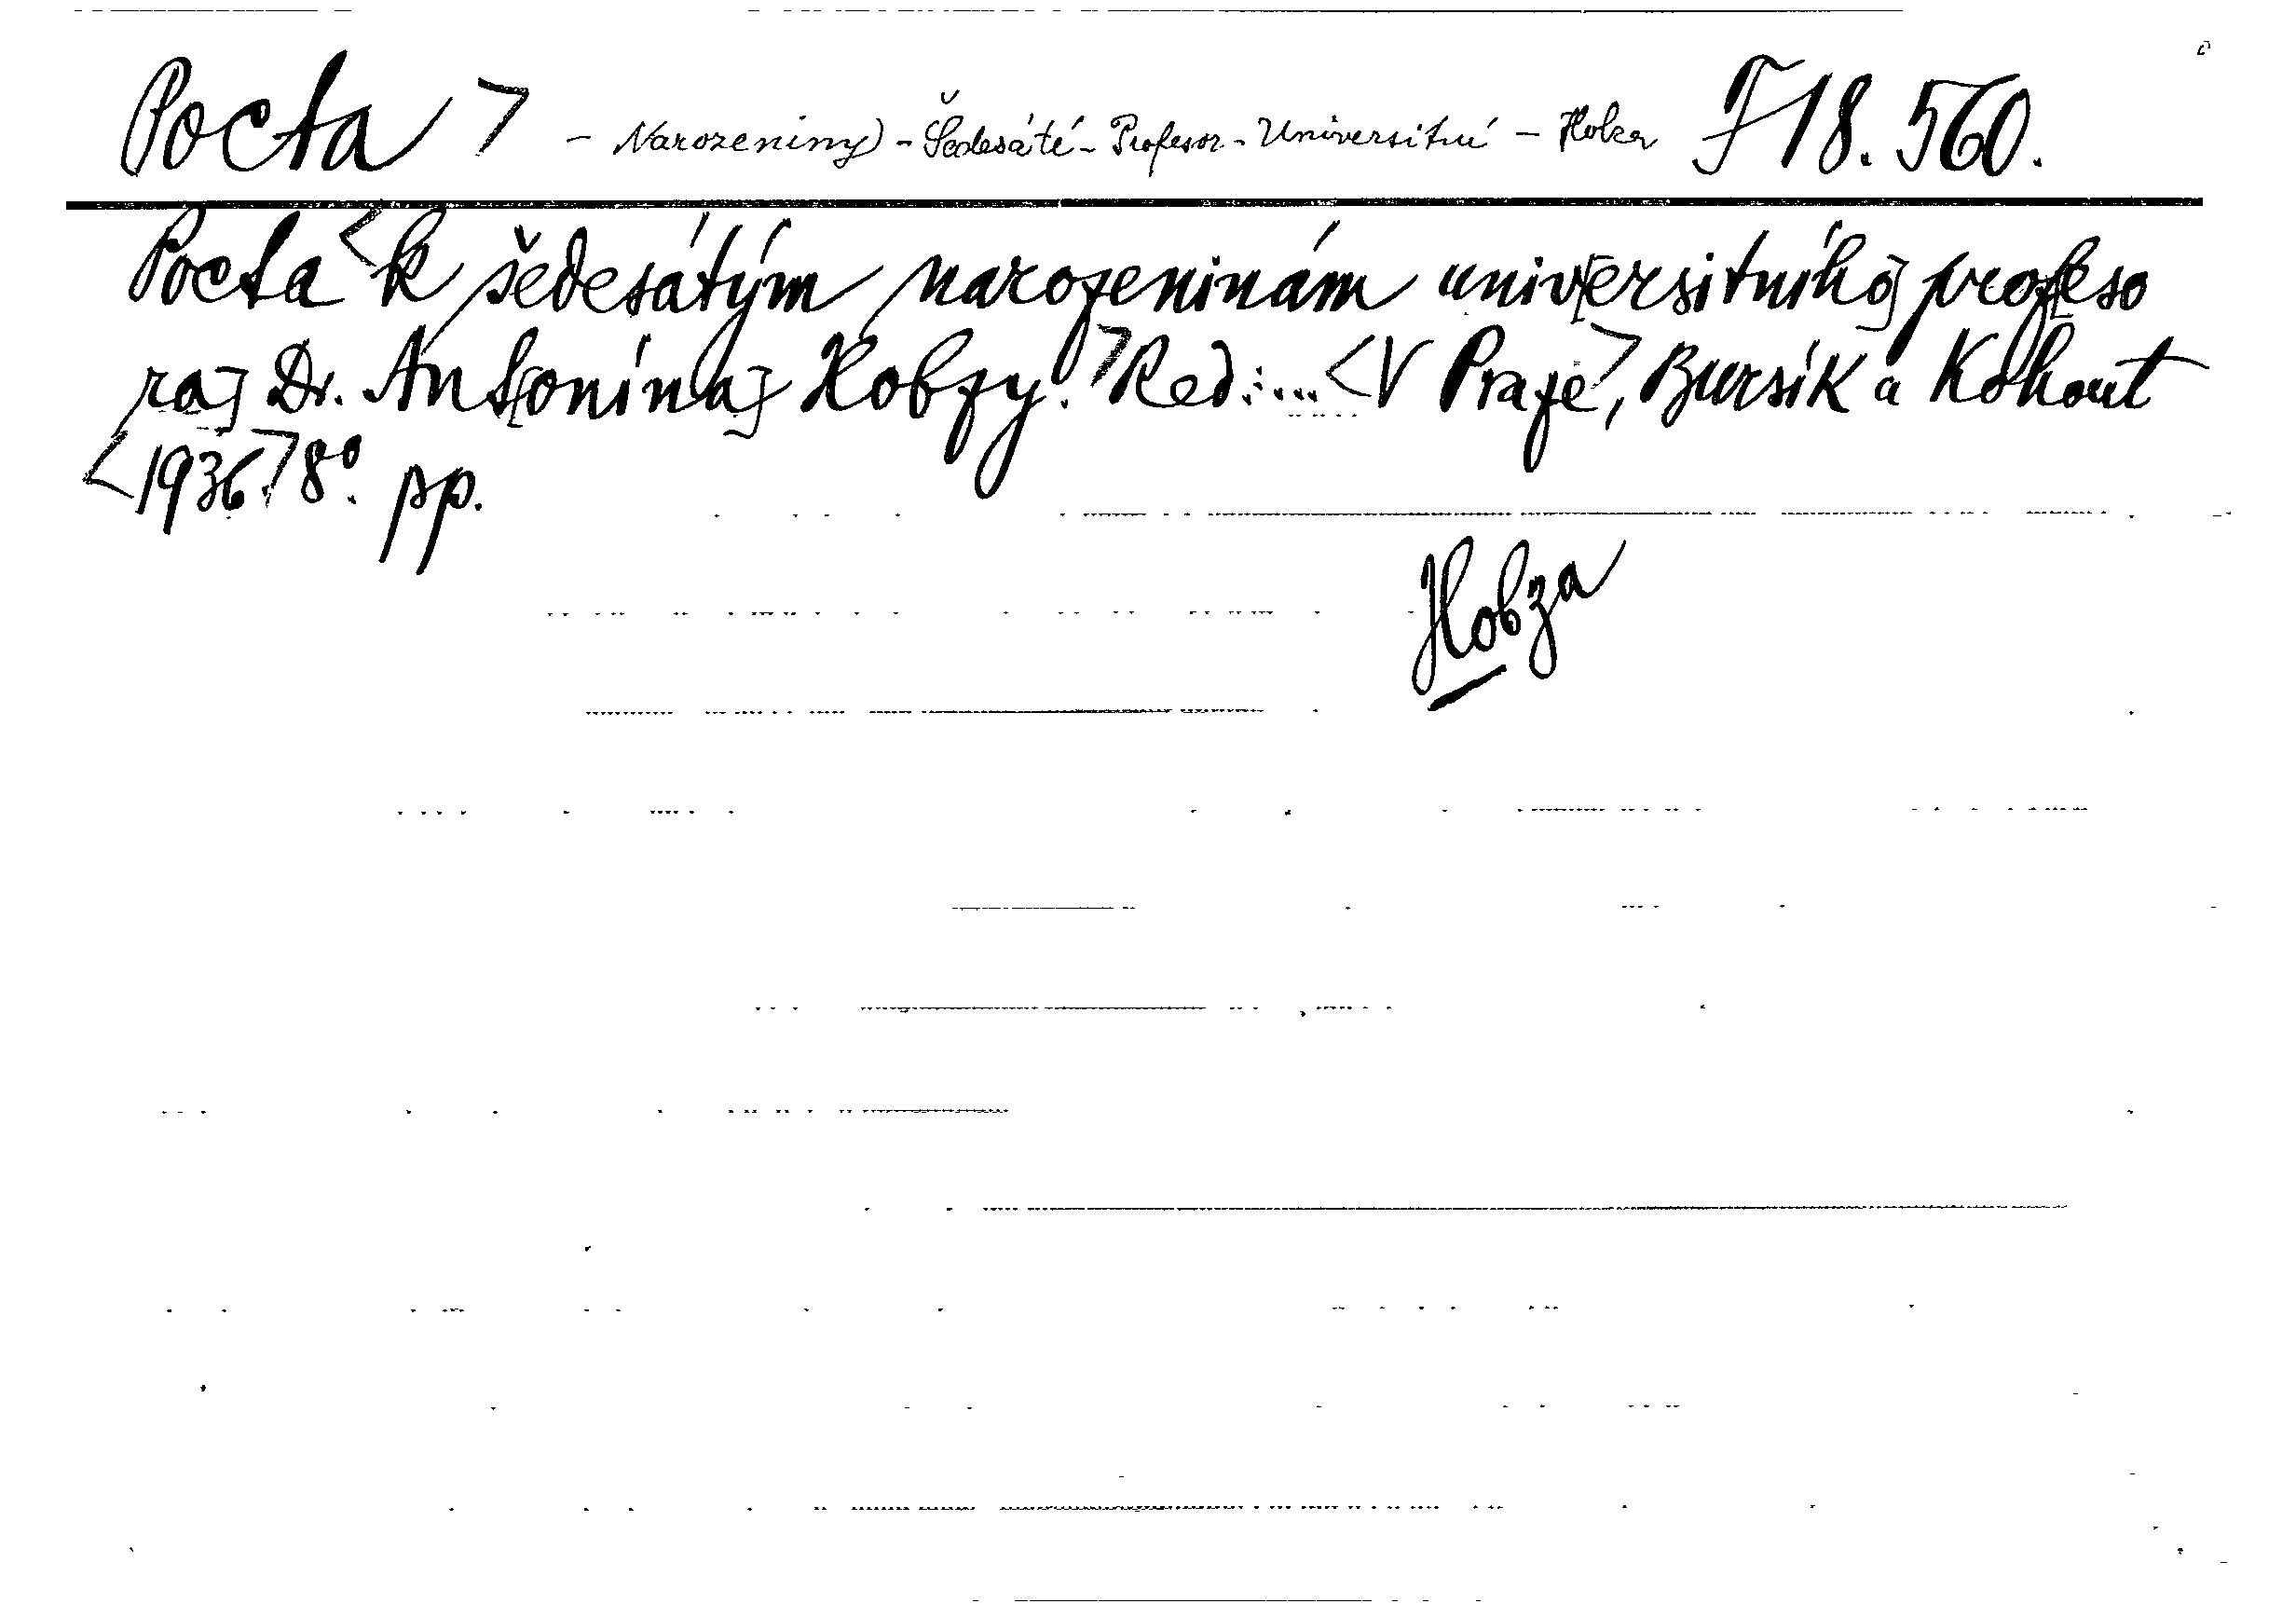 Pocta > - Narozeniny - Šedesáté - Profesor - Universitní - Hobza F 18.560.
Pocta < k šedesátým narozeninám univ[ersitního] prof[eso
ra] Dr. Ant[onína] Hobzy. > Red: ... < V Praze >, Bursík a Kohout
< 1936. > 8°. pp.
Hobza